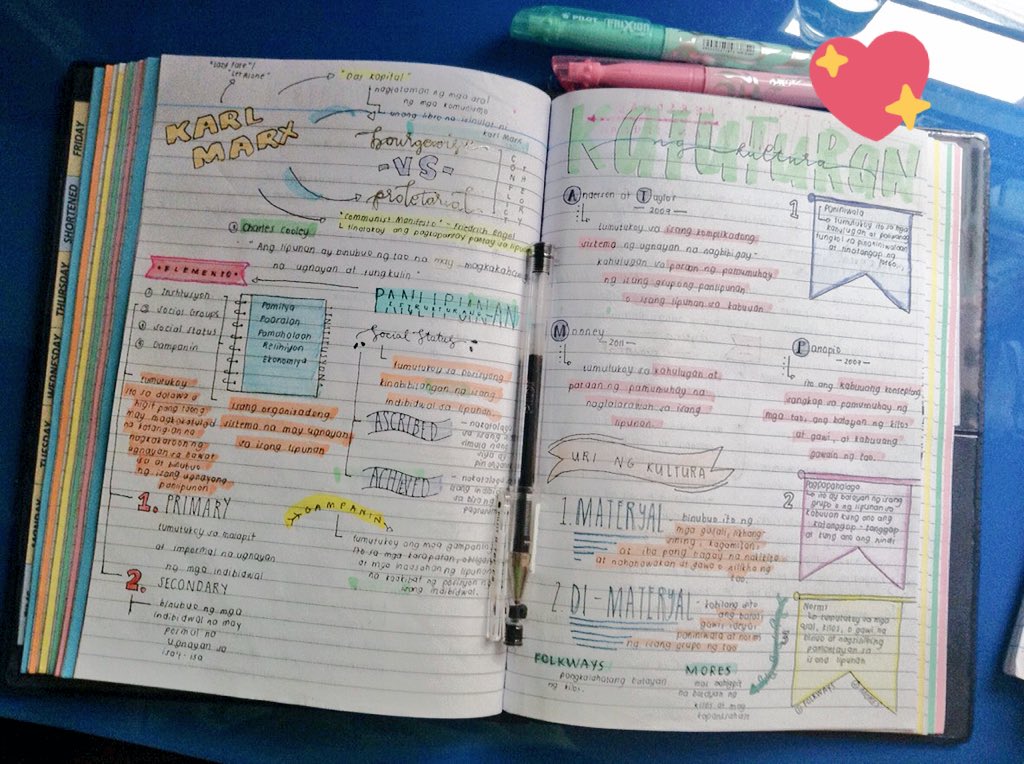 FRIDAY
SHORTENED
THURSDAY
WEDNESDAY
TUESDAY
MONDAY
PILOT FRIXION
"Let Alone"
"Das Kapital"
naglalaman ng mga aral
ng mga komunismo
unang libro na isinulat ni
Karl Marx
KARL
MARX
-VS-
CONFLICT
THEORY
"Communist Manifesto" - Friedrich Engel
Charles Cooley
"Ang lipunan ay binubuo ng tao na may
na ugnayan at tungkulin"
ELEMENTO
① Institusyon
② Social Groups
③ Social Status
④ Gampanin
Pamilya
Paaralan
Pamahalaan
Relihiyon
Ekonomiya
INSTITUSYON
Social Status
tumutukoy sa posisyong
kinabibilangan ng isang
indibidwal sa lipunan
ASCRIBED
ACHIEVED
tumutukoy
ito sa dalawa o
higit pang taong
may magkakatulad
na katangian na
nagkakaroon ng
ugnayan sa bawat
isa at binubuo
ng isang ugnayang
panlipunan
isang organisadong
sistema na may ugnayan
sa isang lipunan
1. PRIMARY
tumutukoy sa malapit
at impormal na ugnayan
ng mga indibidwal
2. SECONDARY
binubuo ng mga
indibidwal na may
pormal na
ugnayan sa
isa't-isa
GAMPANIN
tumutukoy ang mga gampaning
ito sa mga karapatan,
at mga inaasahan ng lipunan
na kaakibat ng posisyon ng
isang indibidwal.
ng kultura
Anderson at Taylor
- 2009 -
tumutukoy sa isang komplikadong
sistema ng ugnayan na nagbibigay-
kahulugan sa paraan ng pamumuhay
ng isang grupong panlipunan
o isang lipunan sa kabuuan
1
Paniniwala
tumutukoy ito sa mga
kahulugan at paliwanag
tungkol sa pinaniniwalaan
at tinatanggap ng
Mooney
- 2011 -
tumutukoy sa kahulugan at
paraan ng pamumuhay na
naglalarawan sa isang
lipunan.
Panopio
- 2007 -
ito ang kabuuang konseptong
sangkap sa pamumuhay ng
mga tao, ang batayan ng kilos
at gawi, at kabuuang
gawain ng tao.
URI NG KULTURA
1. MATERYAL - binubuo ito ng
mga gusali, likhang
sining, kagamitan,
at iba pang bagay na nakikita
at nahahawakan at gawa o nilikha ng
tao.
2
Pagpapahalaga
ito ay batayan ng isang
grupo o ng lipunan sa
kabuuan kung ano ang
katanggap-tanggap
at kung ano ang hindi
2. DI-MATERYAL - kabilang dito
ang batas,
gawi, ideya,
paniniwala at norms
ng isang grupo ng tao
FOLKWAYS
pangkalahatang batayan
ng kilos.
MORES
mas mahigpit
na batayan ng
kilos
Norms
tumutukoy sa mga
asal, kilos, o gawi na
binuo at nagsisilbing
pamantayan sa
isang lipunan
FOLKWAYS
MORES